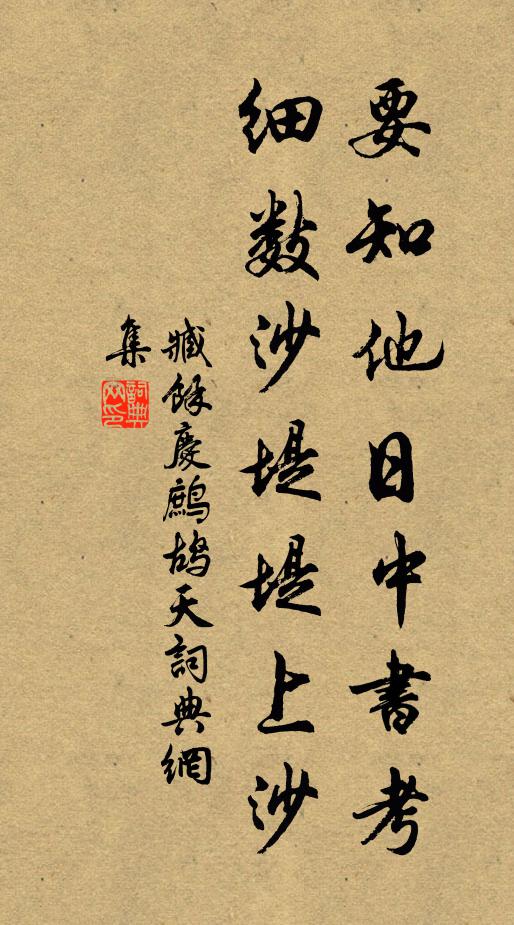 要知他日中書考
細數沙堤堤上沙
臧餘慶鷓鴣天詞典網
集
詞典網印